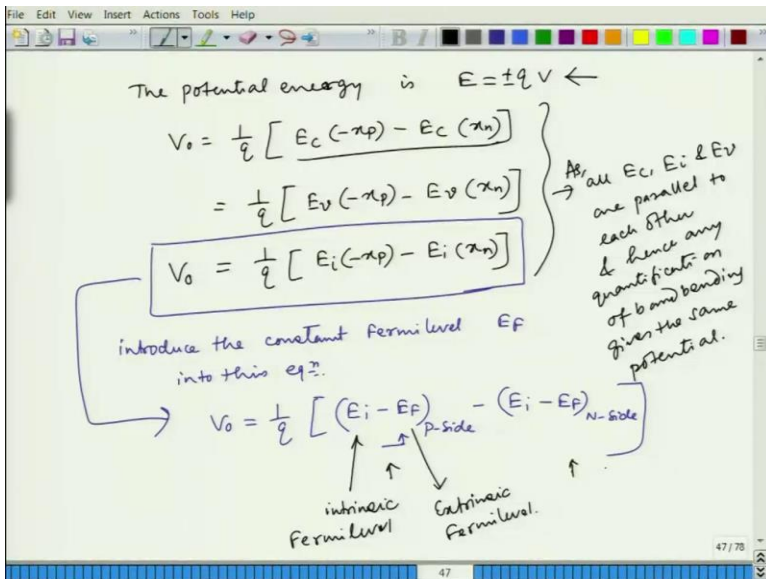 File Edit View Insert Actions Tools Help
The potential energy is E = ±qV ←
V₀ = 1/q [ Ec (-xp) - Ec (xn) ]
= 1/q [ Ev (-xp) - Ev (xn) ]
V₀ = 1/q [ Ei (-xp) - Ei (xn) ]
As, all Ec, Ei & Ev
are parallel to
each other
& hence any
quantification
of band bending
gives the same
potential.
introduce the constant Fermilevel EF
into this eqn.
V₀ = 1/q [ (Ei - EF)P-side - (Ei - EF)N-side ]
intrinsic
Fermilevel
Extrinsic
Fermilevel.
47 / 78
47